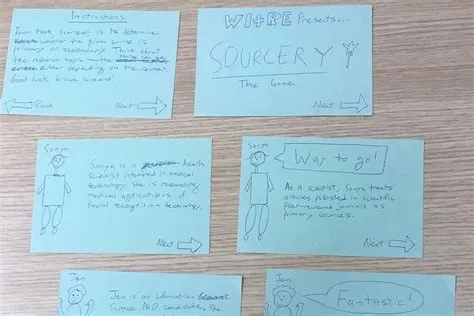 Instructions
Your task, sourcerer, is to determine
whether the given source is
primary or secondary. Think about
the research topic — the
either depending on the context.
Good luck, brave wizard!
Back
Next
WI+RE Presents...
SOURCERY
The Game
Next
Sonya
Sonya is a health
scientist interested in medical
technology. She is researching
medical applications of
facial recognition technology.
Next
Sonya
Way to go!
As a scientist, Sonya treats
studies published in scientific
peer-reviewed journals as
primary sources.
Next
Jen
Jen is an Information
Science PhD candidate. She
Jen
Fantastic!